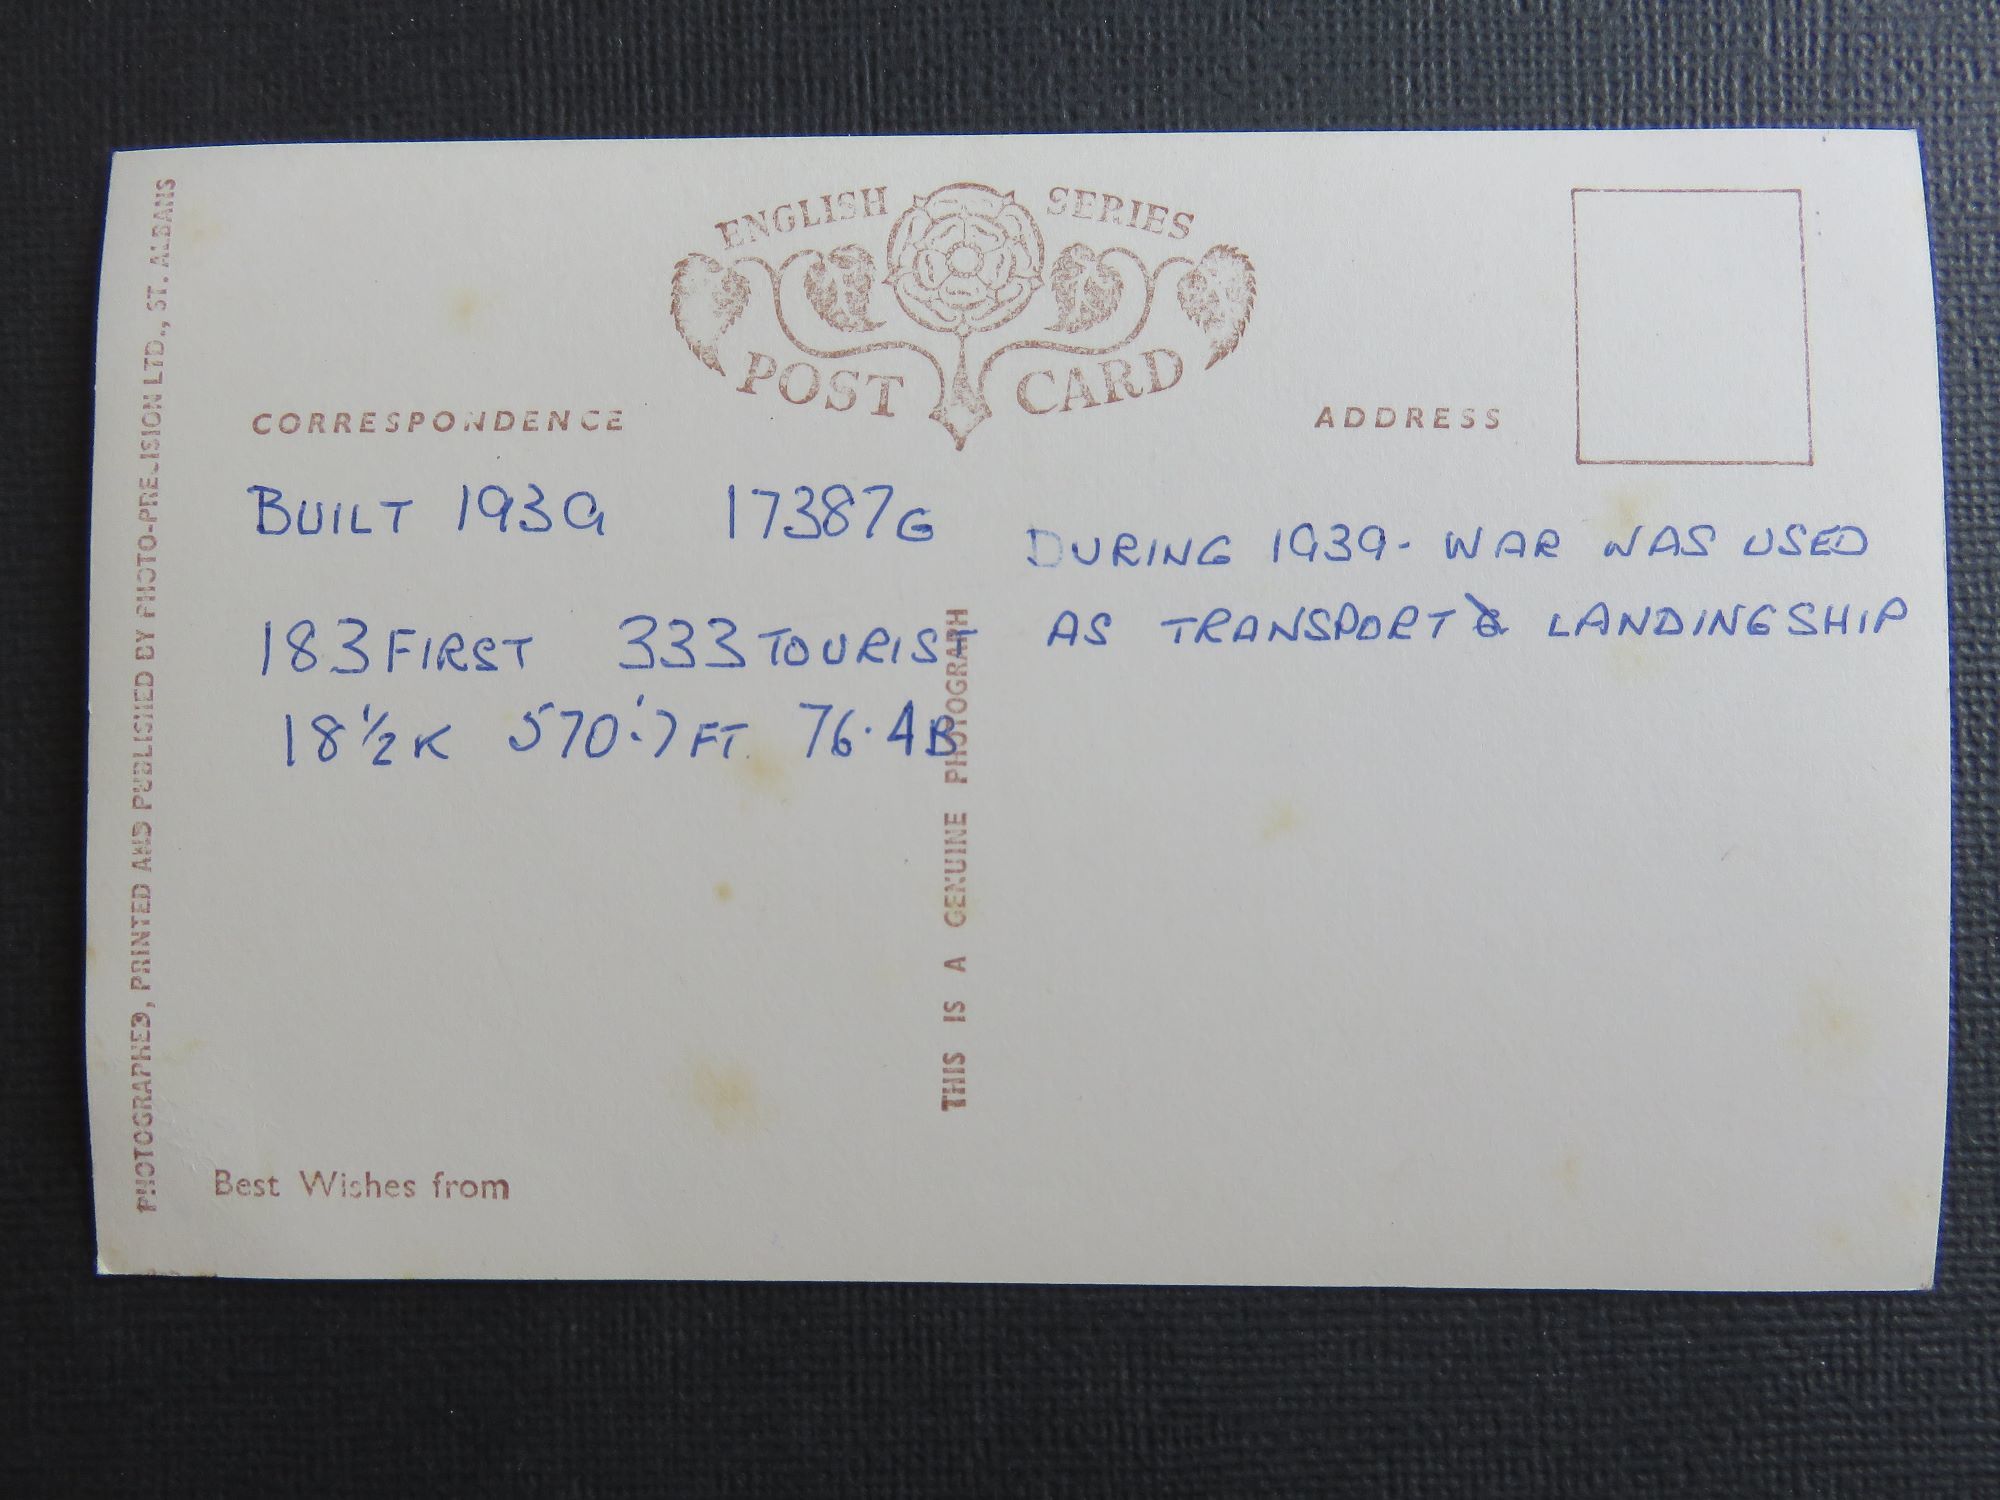 ENGLISH SERIES
POST CARD
CORRESPONDENCE
ADDRESS
BUILT 1939 17387G
183 FIRST 333 TOURIST
18 1/2 K 570.7 FT. 76.4 B
DURING 1939- WAR WAS USED
AS TRANSPORT & LANDINGSHIP
THIS IS A GENUINE PHOTOGRAPH
PHOTOGRAPHED, PRINTED AND PUBLISHED BY PHOTO-PRECISION LTD., ST. ALBANS
Best Wishes from